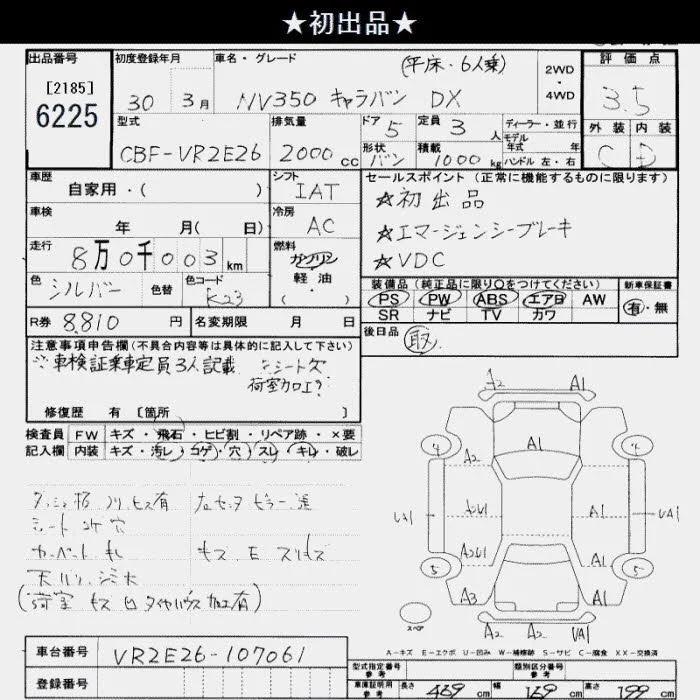 ★初出品★
出品番号
[2185]
6225
初度登録年月
30 3月
車名・グレード
(平床・6人乗)
NV350 キャラバン DX
2WD
・
4WD
評価点
3.5
外装 内装
C D
型式
CBF-VR2E26
排気量
2000cc
ドア
5
定員
3人
形状
バン
積載
1000kg
ディーラー・並行
モデル
年式 年
ハンドル 左・右
車歴
自家用・( )
シフト
IAT
車検
年 月( 日)
冷房
AC
走行
8万0千003km
燃料
ガソリン
軽油
・
( )
色
シルバー
色替
色コード
K23
R券 8,810円
名変期限 月 日
セールスポイント(正常に機能するものに限ります)
☆初出品
☆エマージェンシーブレーキ
☆VDC
装備品(純正品に限り○をつけてください)
PS PW ABS エアB AW
SR ナビ TV カワ
新車保証書
有・無
後日品
取
注意事項申告欄(不具合内容等は具体的に記入して下さい)
※車検証乗車定員3人記載 シート欠
荷室加工?
修復歴 有 [箇所 ]
検査員
記入欄
FW キズ・飛石・ヒビ割・リペア跡・×要
内装 キズ・汚レ・コゲ・穴・スレ・キレ・破レ
シート コゲ 穴
カーペット キレ
(荷室 キズ 凹 タイヤハウス加工有)
A2 A1
4 4
A1
A2
A2U1 A1
UA1 UA1
A2U1 A1
5 5
A3 A1
スペア
A2 A2 UA1
A-キズ E-エクボ U-凹み W-補修跡 S-サビ C-腐食 XX-交換済
車台番号 VR2E26-107061
登録番号
型式指定番号
参考
類別区分番号
参考
車庫証明用
参考
長さ 469cm 幅 169cm 高さ 199cm